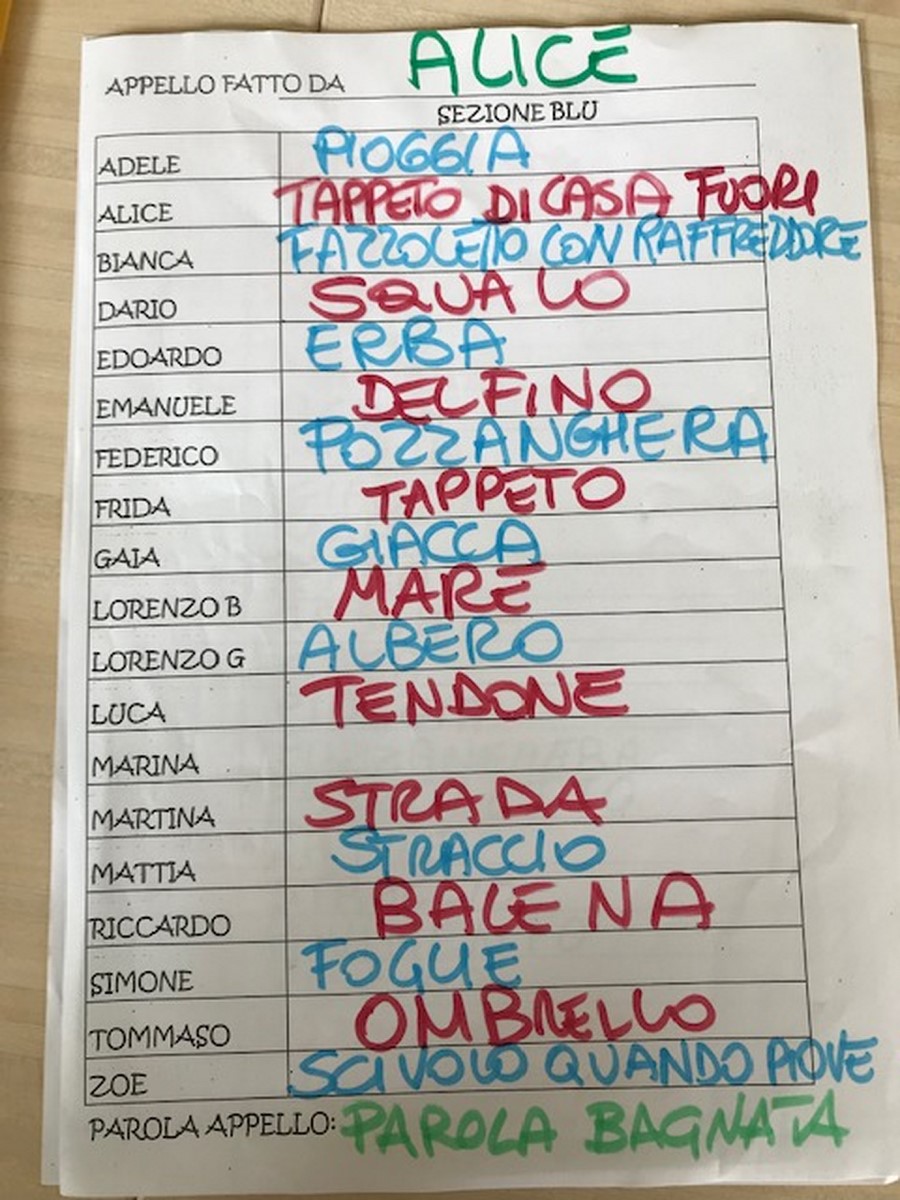 APPELLO FATTO DA ALICE
SEZIONE BLU
ADELE PIOGGIA
ALICE TAPPETO DI CASA FUORI
BIANCA FAZZOLETTO CON RAFFREDDORE
DARIO SQUALO
EDOARDO ERBA
EMANUELE DELFINO
FEDERICO POZZANGHERA
FRIDA TAPPETO
GAIA GIACCA
LORENZO B MARE
LORENZO G ALBERO
LUCA TENDONE
MARINA
MARTINA STRADA
MATTIA STRACCIO
RICCARDO BALENA
SIMONE FOGLIE
TOMMASO OMBRELLO
ZOE SCIVOLO QUANDO PIOVE
PAROLA APPELLO: PAROLA BAGNATA